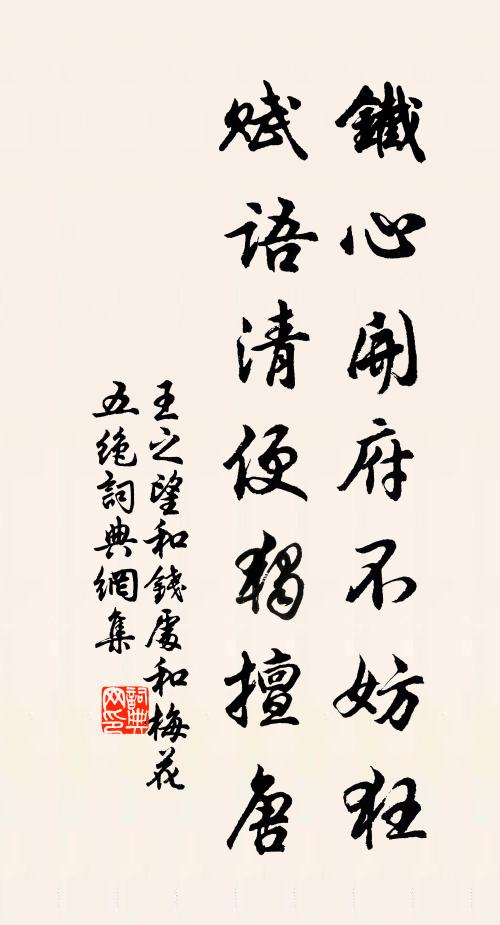 鐵心開府不妨狂
賦語清便獨擅唐
王之望和錢處和梅花
五絶詞典網集
詞典網印